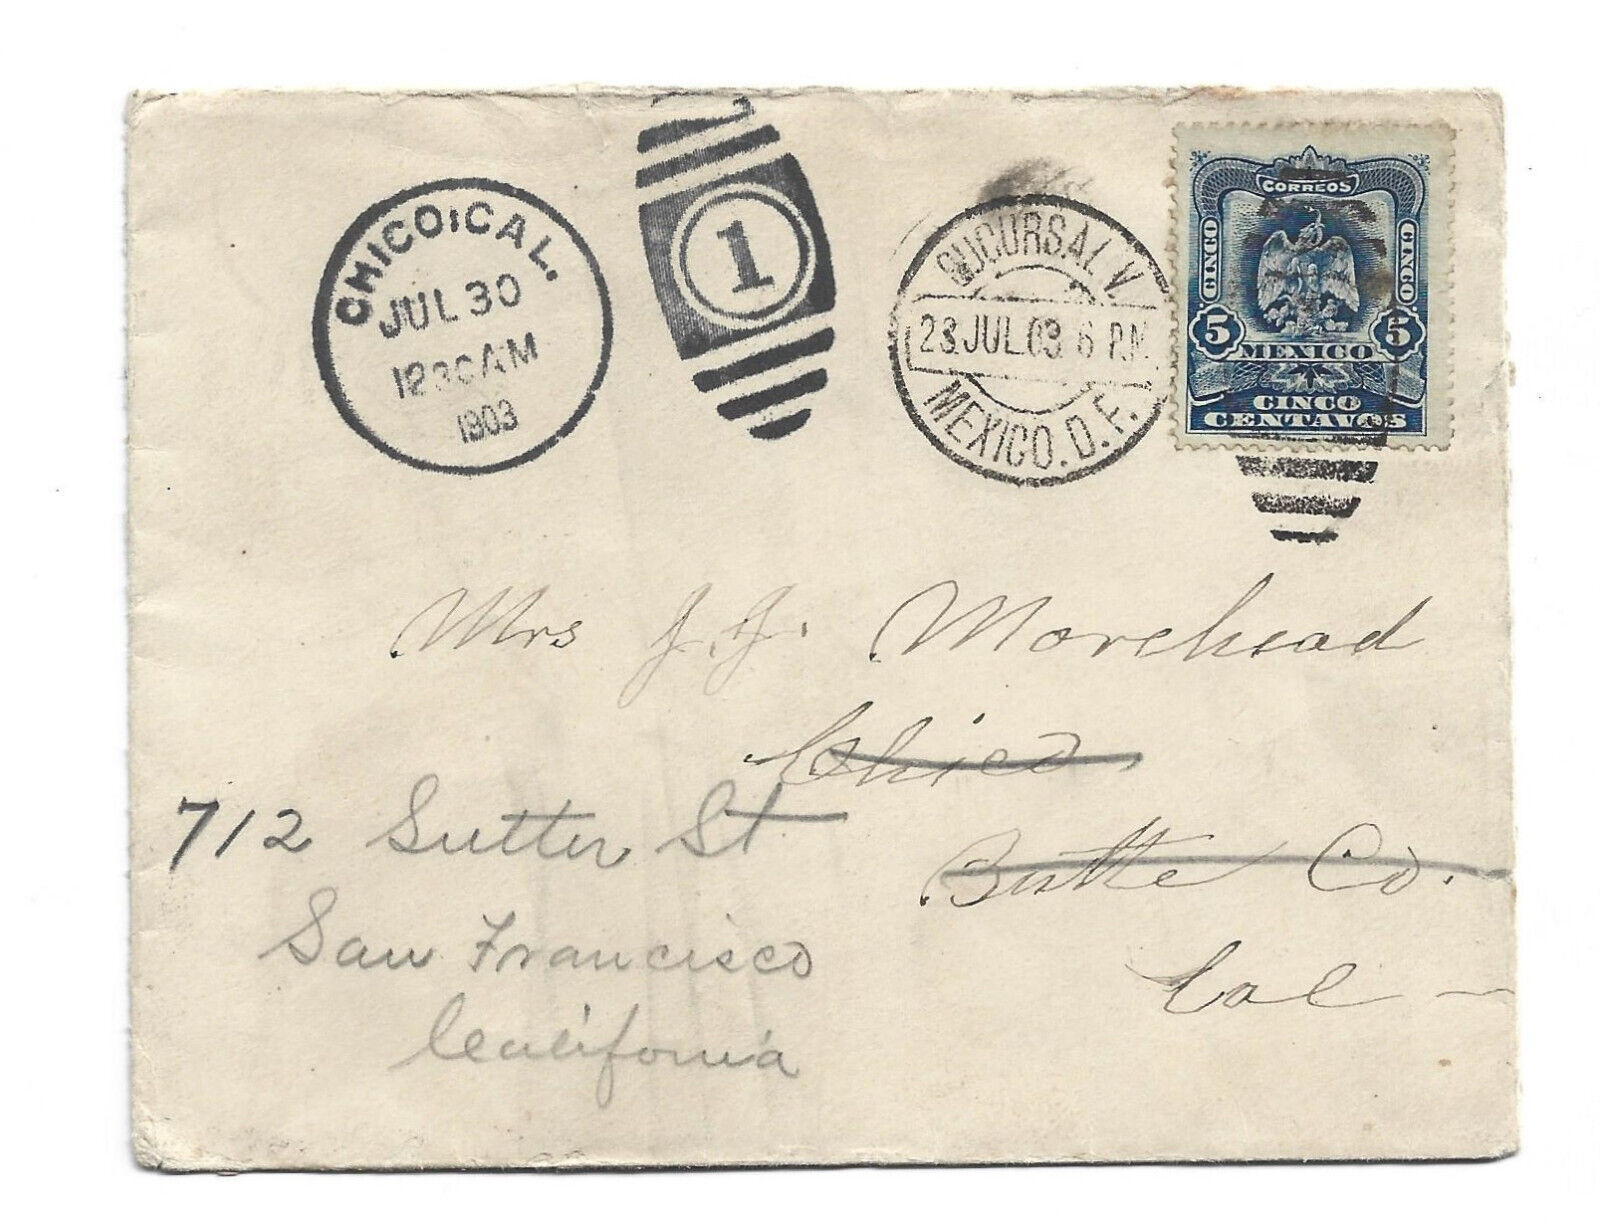 CHICO, CAL.
JUL 30
12 30 AM
1903
1
SUCURSAL V.
23 JUL. 03 6 P.M.
MEXICO. D. F.
CORREOS
CINCO
CINCO
5
5
MEXICO
CINCO
CENTAVOS
Mrs J. J. Morehead
Chico
Butte Co.
Cal
712 Sutter St
San Francisco
California